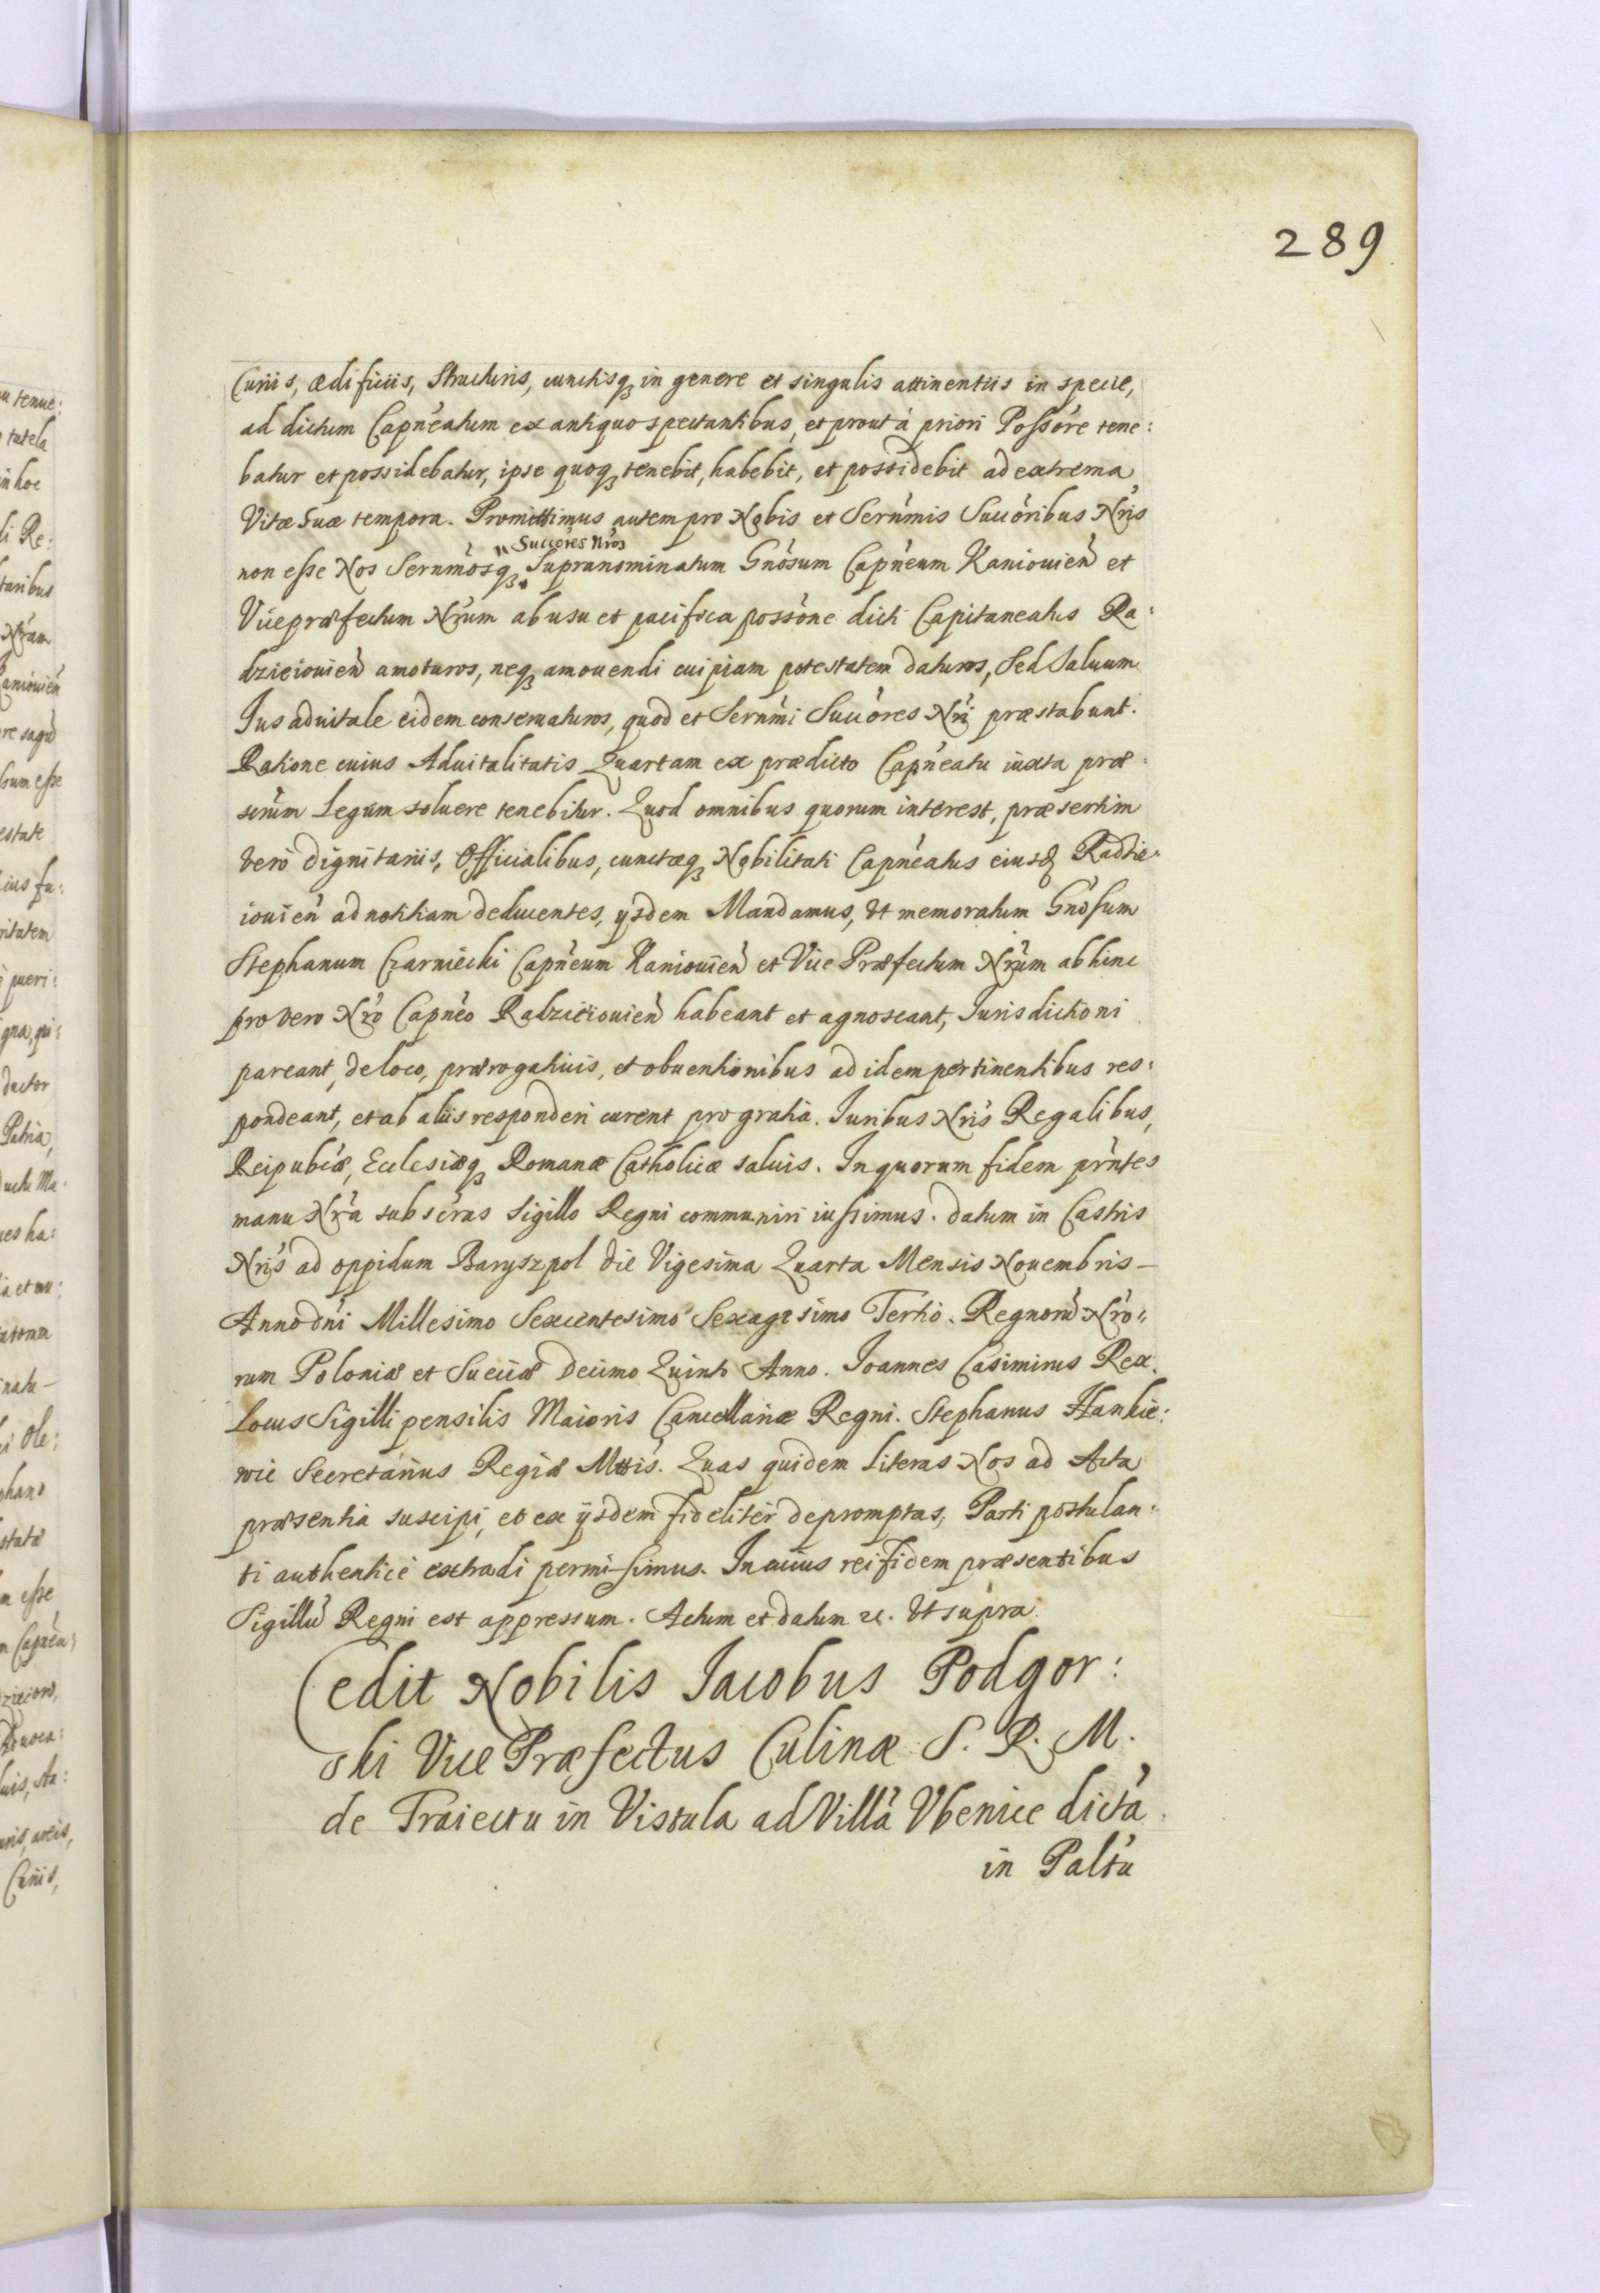 289
Curiis, ædificiis, Structuris, cunctisq3 in genere et singulis attinentiis in specie,
ad dictum Capńeatum ex antiquo spectantibus, et prout à priori Possóre tene:
batur et possidebatur, ipse quoq3 tenebit, habebit, et possidebit ad extrema
Vitæ Suæ tempora. Promittimus autem pro Nobis et Serńmis Succóribus Nŕis
Succóres Nŕos
non esse Nos Serńmosq3 Supranominatum Gnósum Capńeum Kaniouień et
Vicepræfectum Nŕum ab usu et pacifica possóne dicti Capitaneatus Ra:
dzieiouień amoturos, neq3 amouendi cuipiam potestatem daturos, Sed Saluum
Ius aduitale eidem conseruaturos, quod et Serńmi Succóres Nŕi præstabunt.
Ratione cuius Aduitalitatis Quartam ex prædicto Capńeatu iuxta præ:
scŕum Legum soluere tenebitur. Quod omnibus quorum interest, præsertim
vero dignitariis, Officialibus, cunctæq3 Nobilitati Capńeatus eiusd Radzie:
iouień ad notitiam deducentes, ijsdem Mandamus, Vt memoratum Gnósum
Stephanum Czarniecki Capńeum Kaniouień et Vice Præfectum Nŕum ab hinc
pro vero Nŕo Capńeo Radzieiouień habeant et agnoscant, Iurisdictioni
pareant, de loco, prærogatiuis, et obuentionibus ad idem pertinentibus res:
pondeant, et ab aliis responderi curent pro gratia. Iuribus Nŕis Regalibus,
Reipubĺæ, Ecclesiæq3 Romanæ Catholicæ saluis. In quorum fidem pŕntes
manu Nŕa subscŕas Sigillo Regni communiri iussimus. datum in Castris
Nŕis ad oppidum Baryszpol die Vigesima Quarta Mensis Nouembris –
Anno dńi Millesimo Sexcentesimo Sexagesimo Tertio. Regnorú Nŕo:
rum Poloniæ et Sueciæ Decimo Quinto Anno. Ioannes Casimirus Rex.
Locus Sigilli pensilis Maioris Cancellariæ Regni. Stephanus Hankie:
wic Secretarius Regiæ Mttis. Quas quidem Literas Nos ad Acta
præsentia suscipi, et ex ijsdem fideliter depromptas, Parti postulan:
ti authentice extradi permisimus. In cuius rei fidem præsentibus
Sigillú Regni est appressum. Actum et datum &c. Vt supra.
Cedit Nobilis Iacobus Podgor:
ski Vice Præfectus Culinæ S. R. M.
de Traiectu in Vistula ad Villá Vbenice dictá
in Paltú